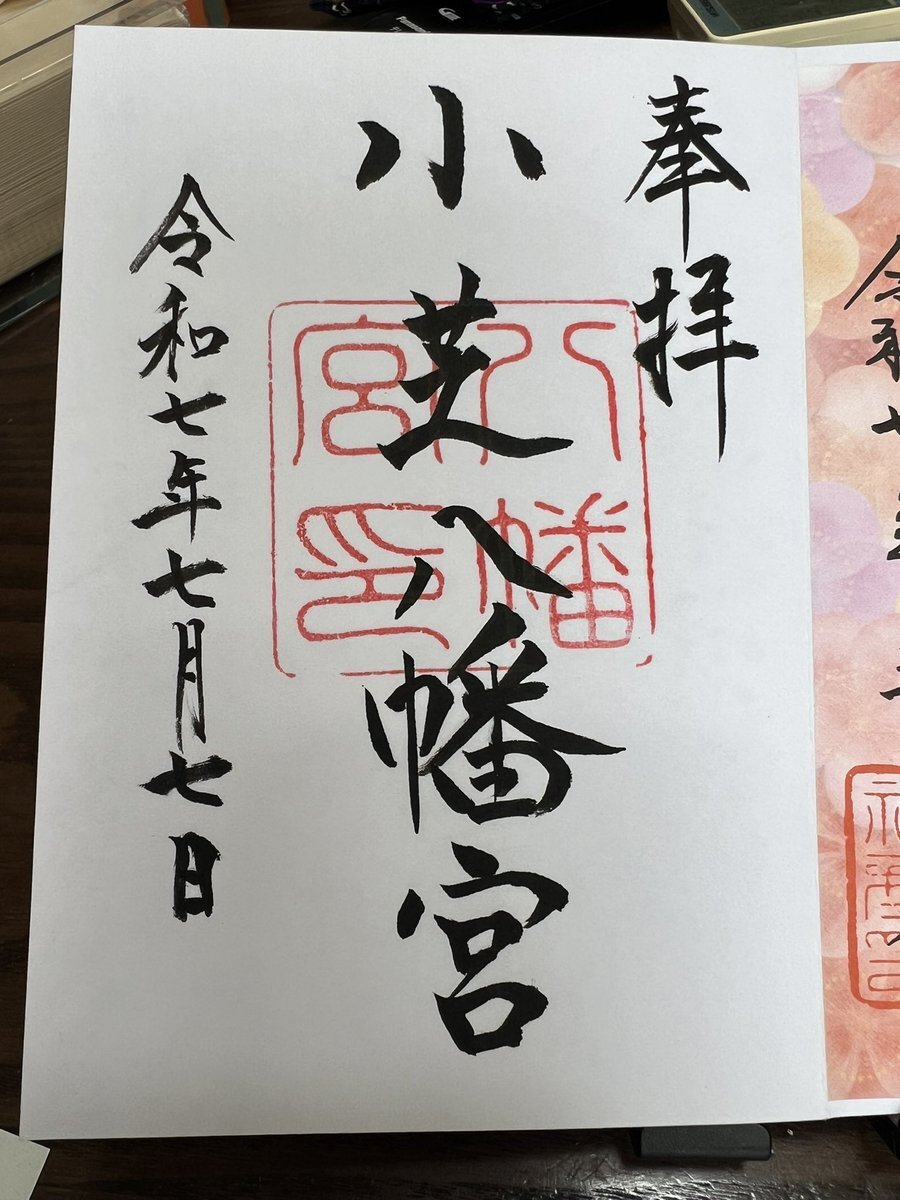 奉拝
小芝八幡宮
八幡
宮印
令和七年七月七日
令和七年
Panasonic